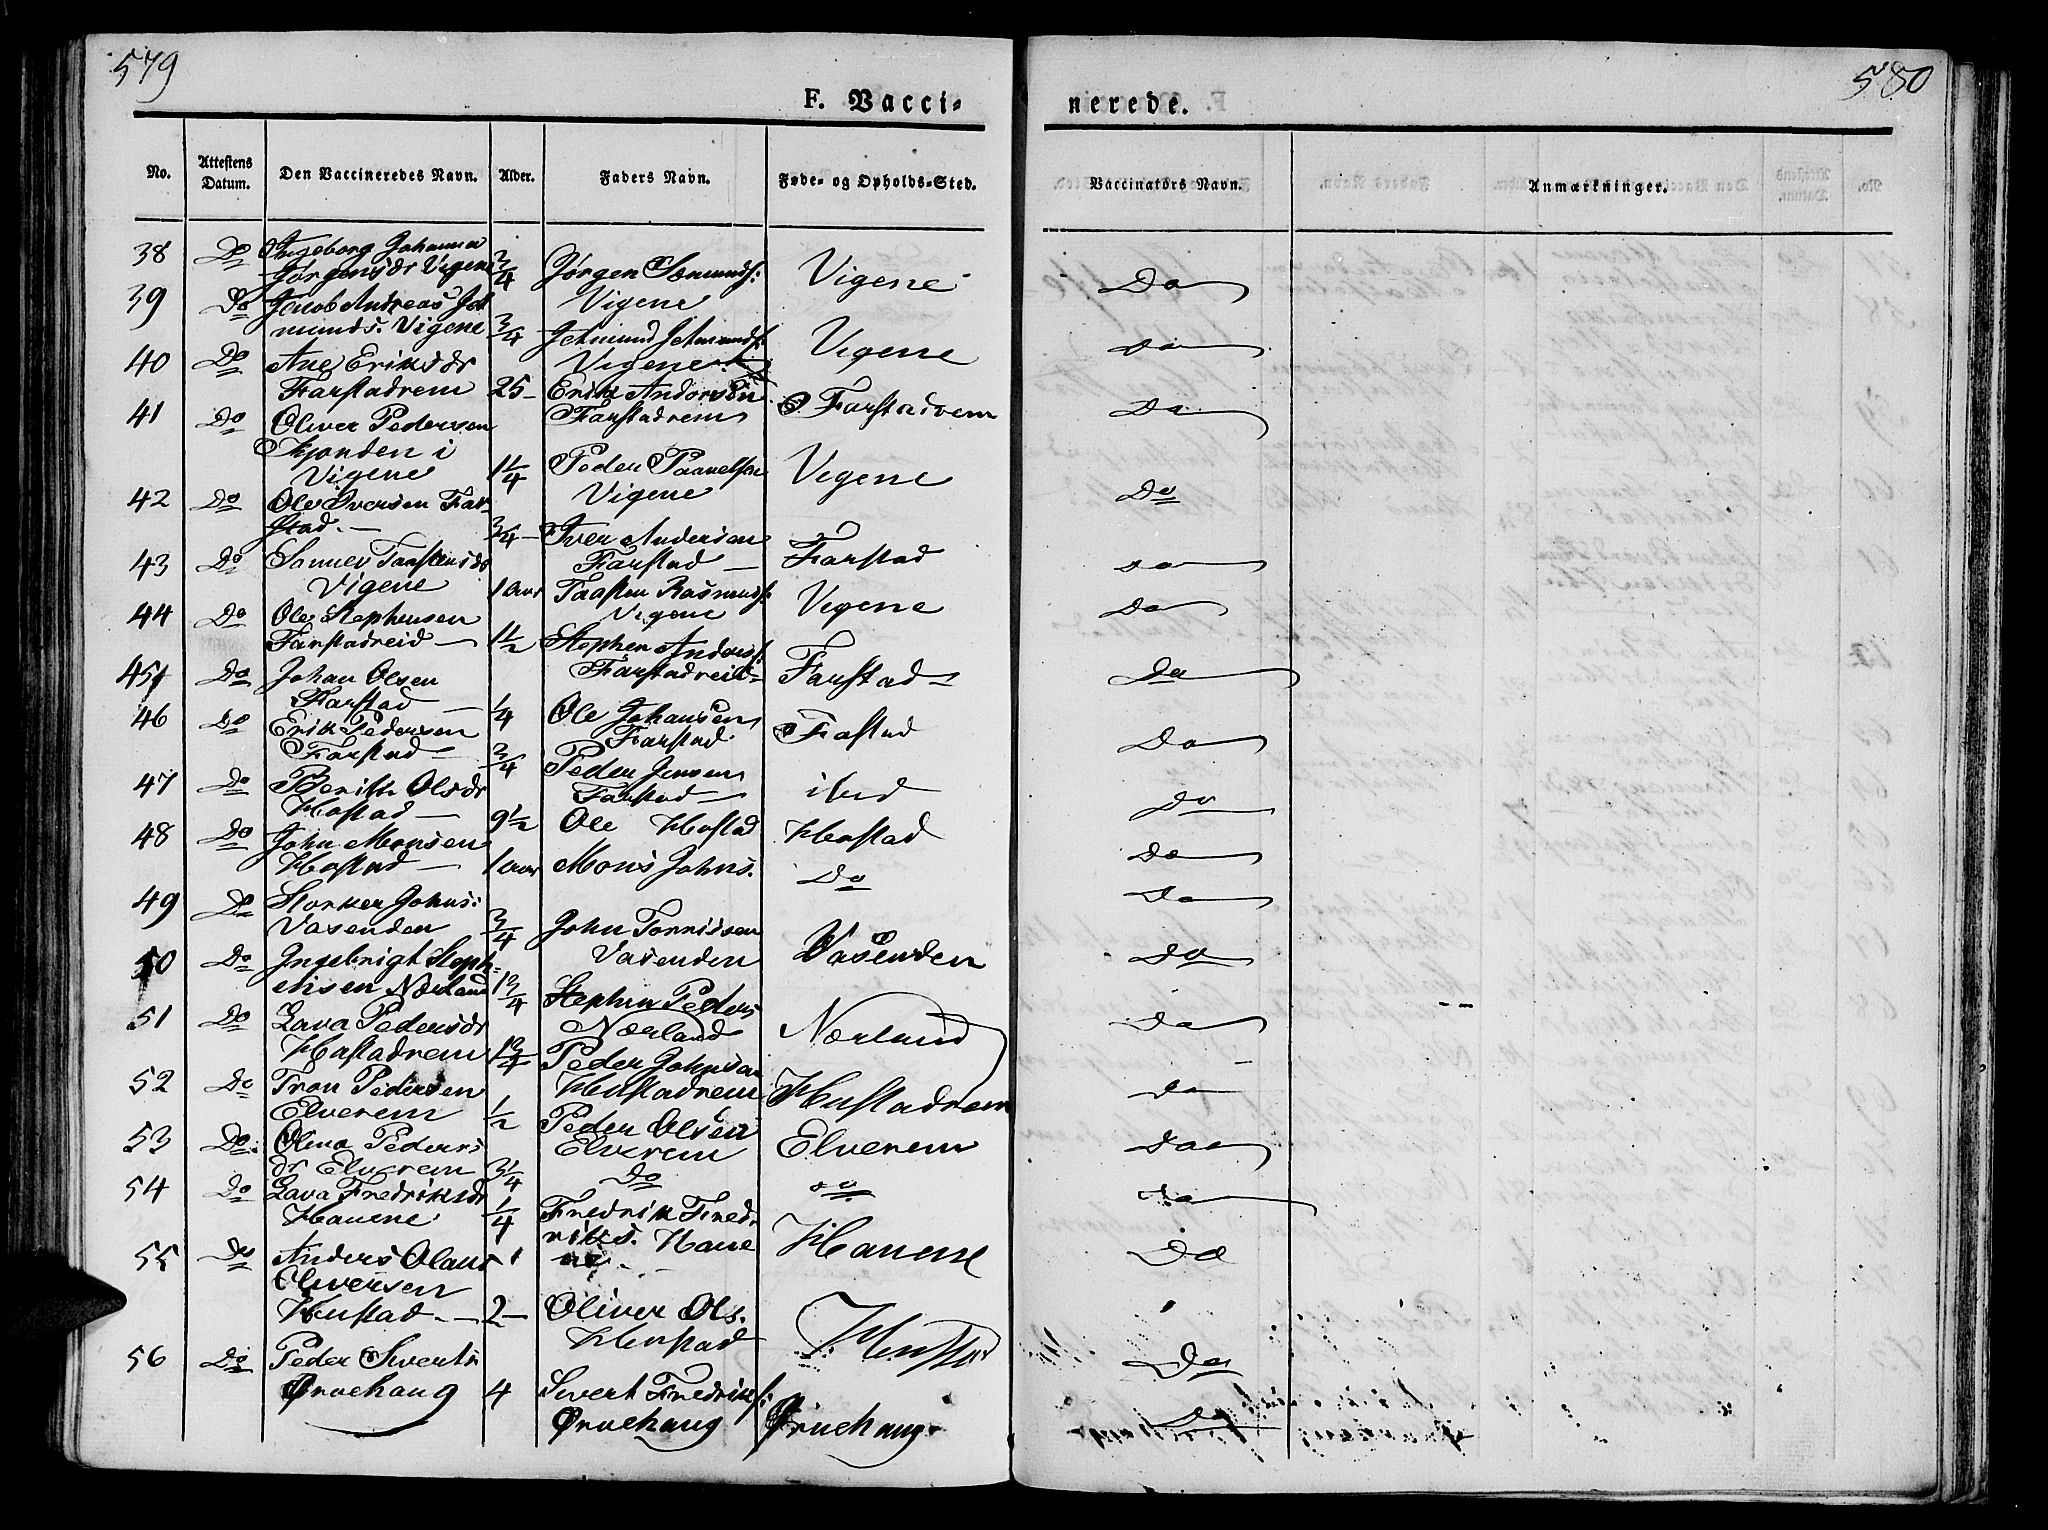 579
580
F. Vacci-
nerede.
No.
Attestens Datum.
Den Vaccineredes Navn.
Alder.
Faders Navn.
Føde- og Opholds-Sted.
Vaccinators Navn.
Anmærkninger.
38 Do Ingeborg Johanna
Jørgensdr Vigene 3/4 Jørgen Vigene Do
39 Do Jacob Andreas Jet
munds. Vigene 3/4 Jetmund Jetmunds: Vigene Vigene Do
40 Do Ane Eriksdr
Farstadrem 25 - Erik Andersen Farstadrem Farstadrem Do
41 Do Oliver Pedersen
i
Vigene 1 1/4 Peder Vigene Vigene Do
42 Do Ole Iversen Far-
stad. - 3/4 - Iver Andersen Farstad - Farstad Do
43 Do
Vigene 1 aar Rasmuds: Vigene Vigene Do
44 Do Ole Stephensen
Farstadreid - 1 1/2 Stephen Anders: Farstadreid - Farstad - Do
45 Do Johan Olsen
Farstad - 1/4 Ole Johansen Farstad Fastad Do
46 Do Erik Pedersen
Farstad - 3/4 Peder Jensen Farstad - ibid Do
47 Do Berith Olsdr
Hostad - 9 1/2 Ole Hostad Hostad Do
48 Do John Monsen
Hostad - 1 aar Mons Johns. Do Do
49 Do Storker Johns:
Vasenden 3/4 John Vasenden Vasenden Do
50 Do Ingebrigt Steph-
ensen Nærland 1 3/4 Stephen Peders Nærland Nærland Do
51 Do Lava Pedersdr
Hustadrem 1 3/4 Peder Johnsen Hustadrem Hustadrem Do
52 Do Tron Pedersen
Elverem 1/2 Peder Olsen Elverem Elverem Do
53 Do. Olina Peders
dr Elverem 3 1/4 Do Do Do
54 Do Lava Fredriksdr
Hauene 1/4 Fredrik Fred
riks. Haue
ne. Hauene Do
55 Do Anders Olaus
Oliversen
Hustad. - 2 - Oliver Ols. Hustad Hustad Do
56 Do Peder Siverts
Ørnehaug 4 Sivert Fredriks: Ørnehaug Ørnehaug Do